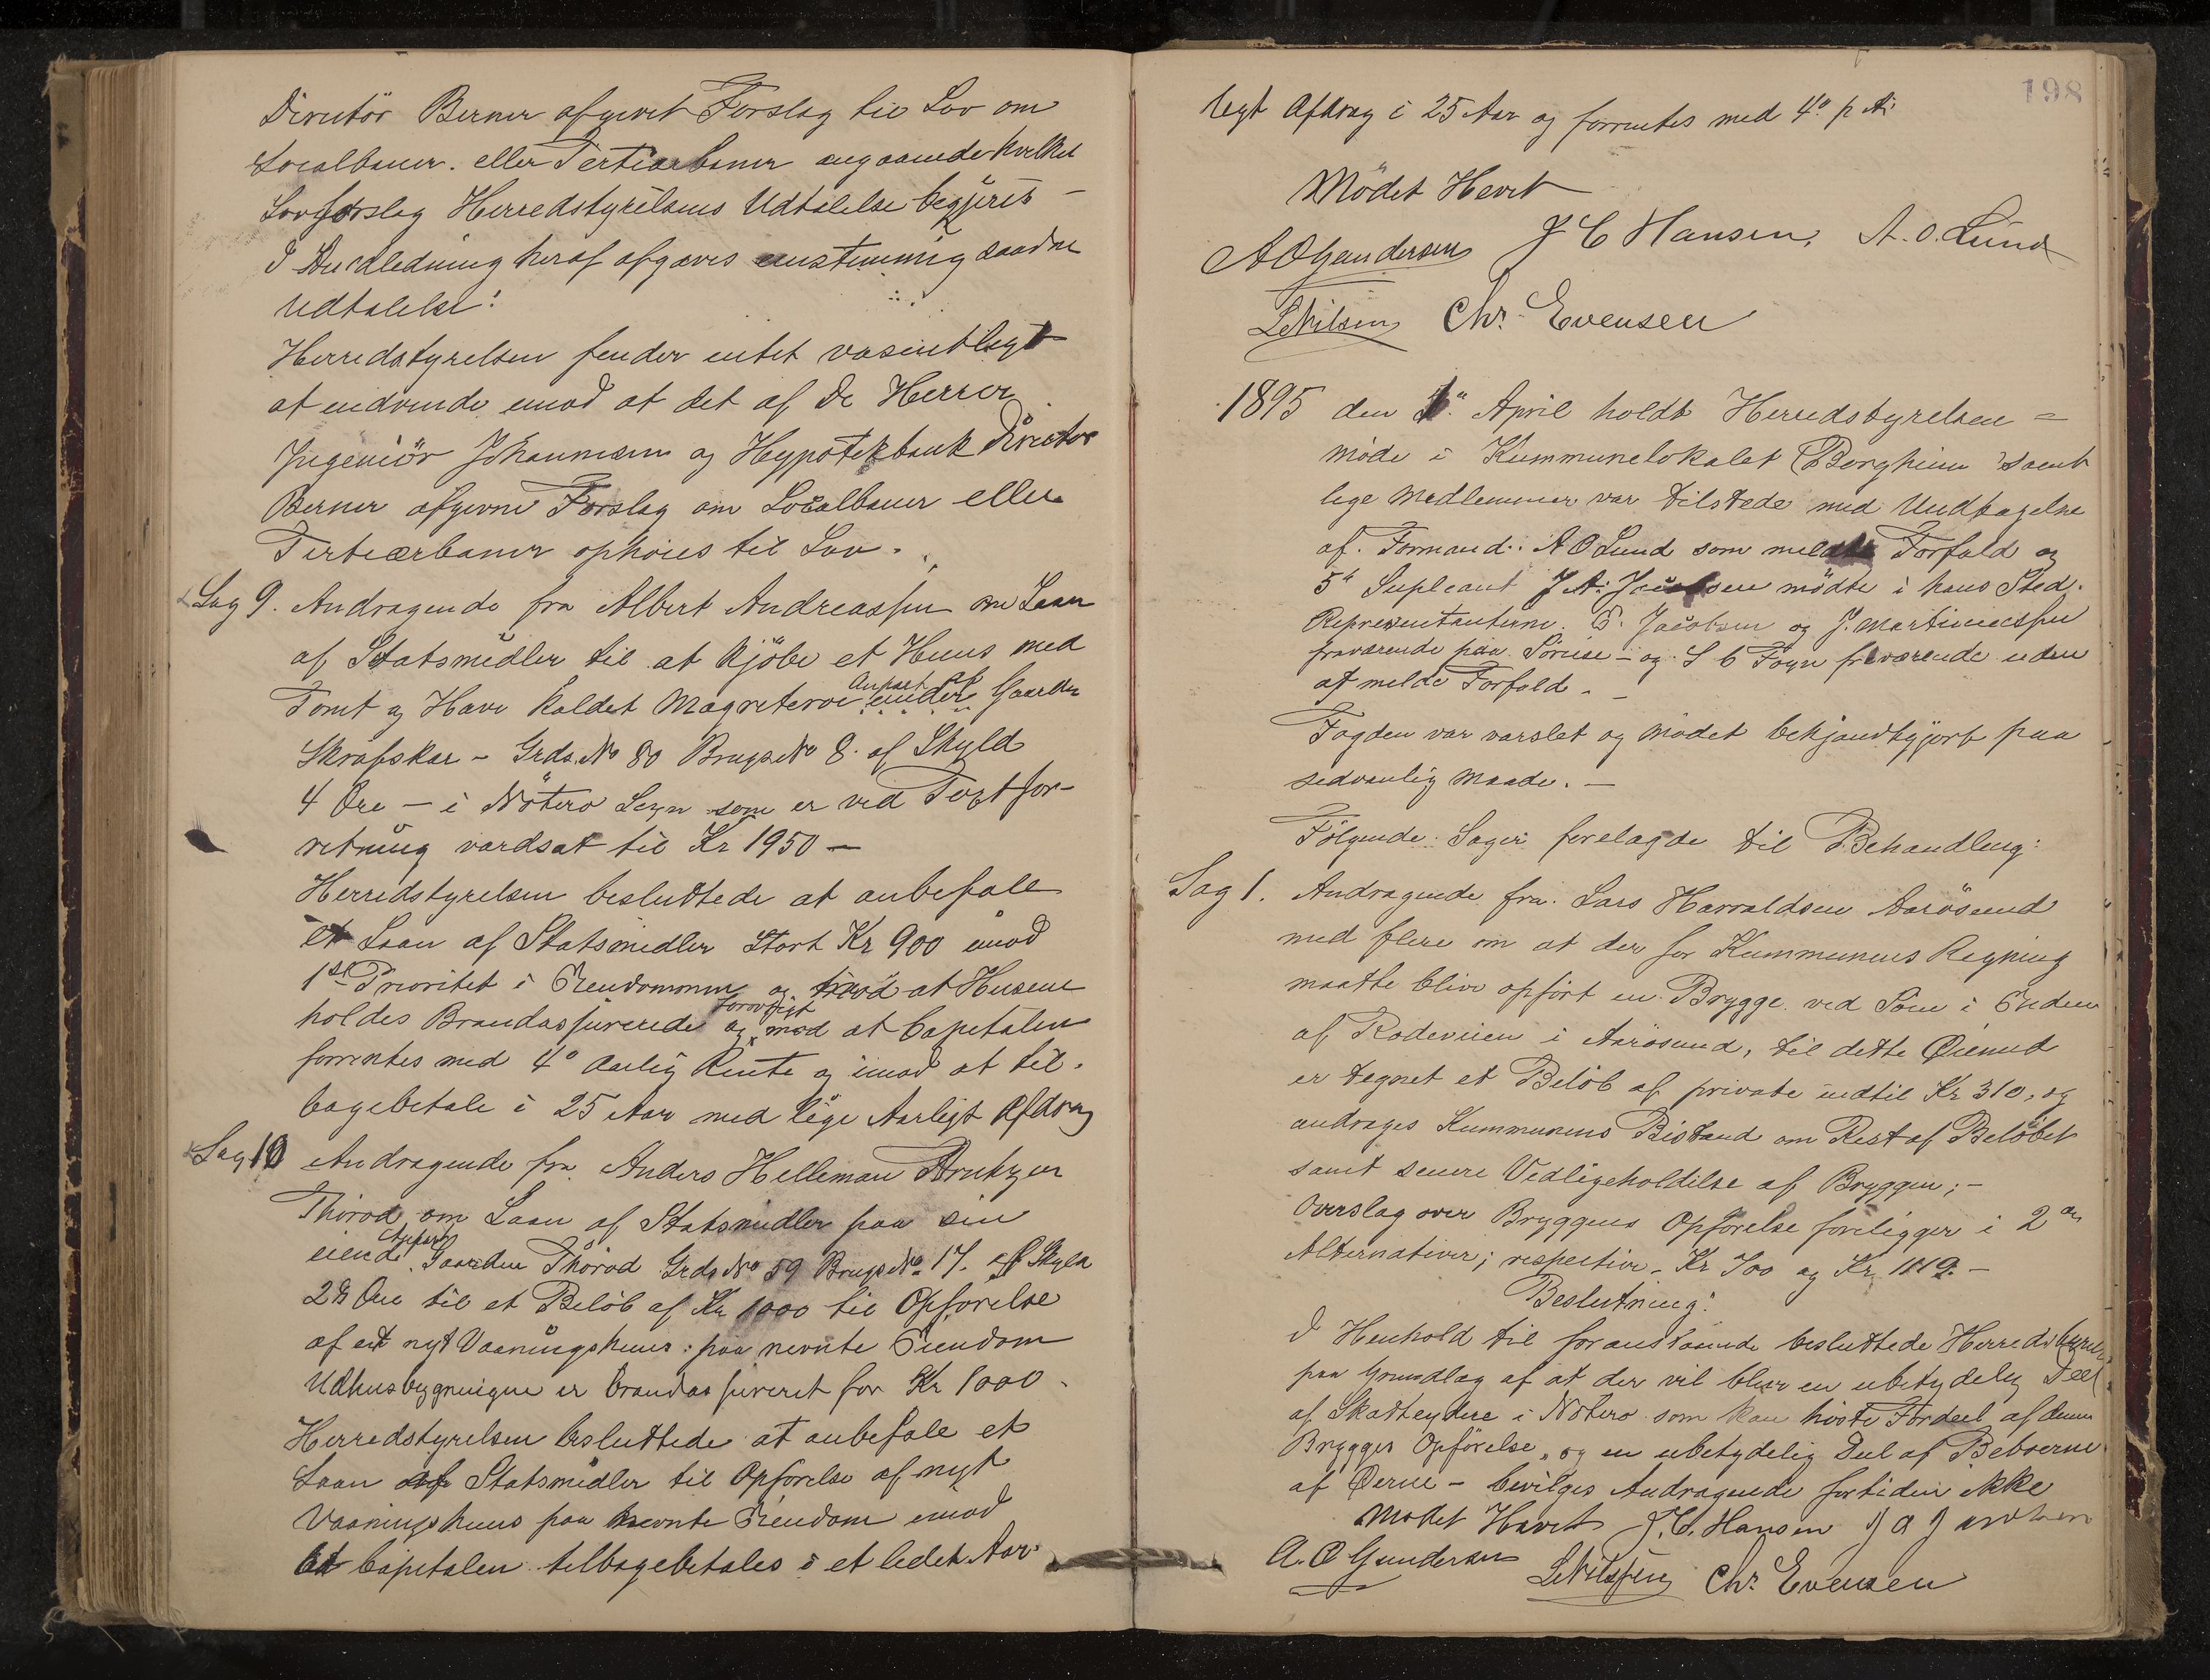 Directör Berner afgivet Forslag til Lov om
Localbaner. eller Tertiærbaner angaaende hvilket
Lovforslag Herredstyrelsens Udtalelse begjæres –
I Anledning heraf afgaves enstemmig saadan
Udtalelse:
Herredstyrelsen finder intet væsentligt
at indvende imod at det af de Herrer
Ingeniör Johannesen og Hypotekbank Direktør
Berner afgivne Forslag om Localbaner eller
Tertiærbaner ophöies til Lov.
Sag 9. Andragende fra Albert Andreassen om Laan
af Statsmidler til at kjöbe et Huus med
Tomt og Have kaldet Magreteroe under Gaarden
Anpart af
Skrafskar – Grds. No 80 Brugs No 8. af Skyld
4 Øre – i Nöterö Sogn som er ved Taxtfor-
retning værdsat til Kr 1950 –
Herredstyrelsen besluttede at anbefale
et Laan af Statsmidler stort Kr 900 imod
1st Prioritet i Eiendommen og imod at Husene
holdes Brandassurerede og mod at Capitalen
forøvrigt
forrentes med 4% Aarlig Rente og imod at til-
bagebetale i 25 Aar med lige Aarligt Afdrag
Sag 10 Andragende fra Anders Helleman
Thorød om Laan af Statsmidler paa sin
eiende Gaarden Thorød Grds No 59 Brugs No 17. af Skyld
Anpart
28 Øre til et Belöb af Kr 1000 til Opförelse
af et nyt Vaaningshuus paa nevnte Eiendom
Udhusbygningene er brandassureret for Kr 1000 –
Herredstyrelsen besluttede at anbefale et
Laan af Statsmidler til Opförelse af nyt
Vaaningshuus paa nevnte Eiendom imod
at Capitalen tilbagebetales i et ledet Aar-
198
ligt Afdrag i 25 Aar og forrentes med 4% p A:
Mödet Hevet
A O Gundersen J C Hansen, A. O. Lund
L Nilsen Chr. Evensen
1895 den 1" April holdt Herredstyrelsen =
möde i Kummunelokalet (Borgheim) samt
lige Medlemmer var tilstede med Undtagelse
af. Formand: A O Lund som meldte Forfald og
5te Supleant J. A: Jacobsen mödte i hans Sted.
Representanterne. E. Jacobsen og J. Martiniussen
fraværende paa Söreise – og S C Foyn fraværende uden
at melde Forfald. –
Fogden var varslet og mödet bekjandtgjort paa
sedvanlig Maade. –
Fölgende Sager forelagde til Behandling:
Sag 1. Andragende fra Lars Harraldsen Aarösund
med flere om at der for Kummunens Regning
maatte blive opfört en Brygge ved Söen i Enden
af Rodeveien i Aarösund, til dette Øiemed
er tegnet et Belöb af private indtil Kr 310, og
andrages Kummunens Bistand om Rest af Belöbet
samt senere Vedligeholdelse af Bryggen; –
Overslag over Bryggens Opförelse foreligger i 2 de
Alternativer; respective – Kr 700 og Kr 1119. –
Beslutning:
I Henhold til foranstaaende besluttede Herredstyrelsen
paa Grundlag af at der vil blive en ubetydelig Deel
af Skatteydere i Nöterö som kan höste Fordeel af denne
Brygges Opförelse, og en ubetydelig Deel af Beboerne
af Øerne – bevilges Andragende fortiden ikke
Mödet Hævet J. C. Hansen J A Jacobsen
A. O Gundersen L Nilsen Chr. Evensen